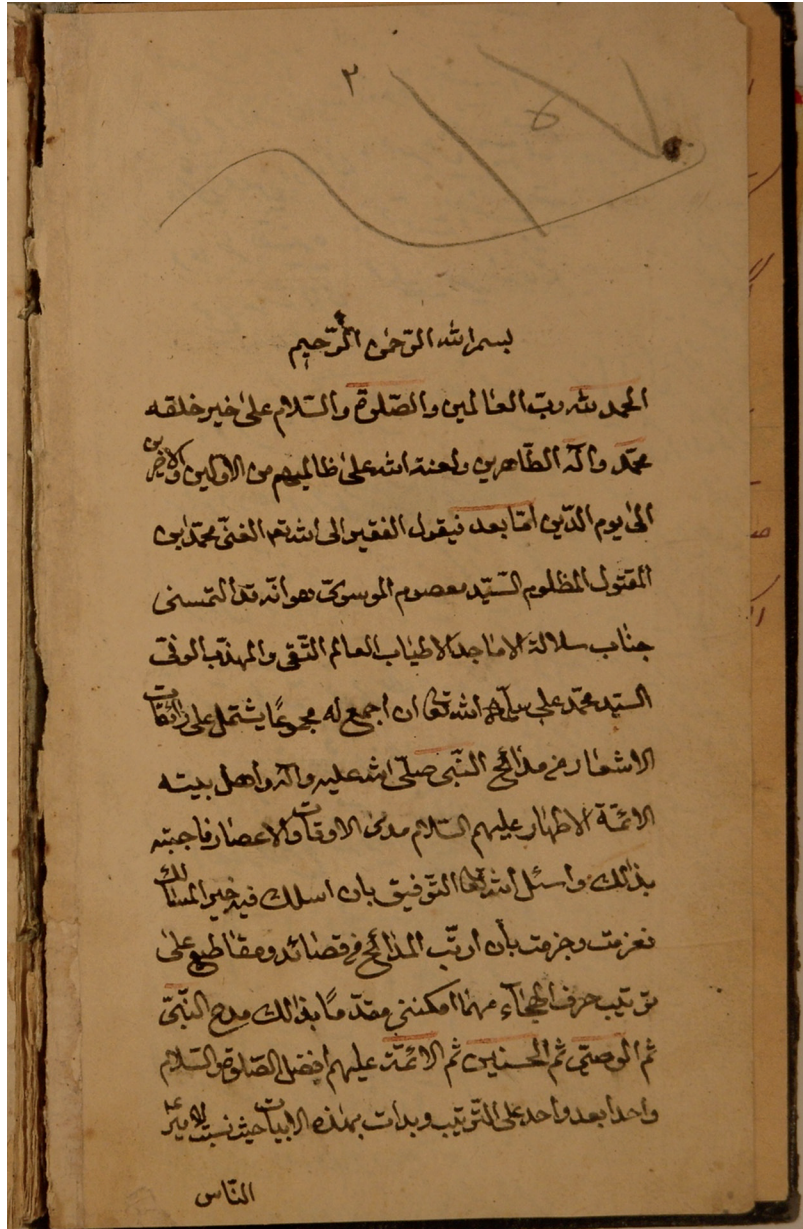 ٣
بسم الله الرّحمن الرّحیم
الحمد لله ربّ العالمین والصّلوة والسّلام علیٰ خیر خلقه
محمّد واله الطّاهرین ولعنة الله علیٰ ظالمیهم من الاوّلین والاخرین
الیٰ یوم الدّین امّا بعد فیقول الفقیر الی الله تعه الغنیّ محمّد ابن
المقتول المظلوم السّیّد معصوم الموسویّ هو انّه قد التمسنی
جناب سلالة الاماجد الاطیاب العالم التّقی والمهذّب الوفی
السید محمّد علی الله تعا ان اجمع له مجموعًا یشتمل علی رائقات
الاشعار فی مدائح النّبی صلّی الله علیه واله واهل بیته
الائمّة الاطهار علیهم السّلام مدی الاوقات والاعصار فاجبته
بذالك واسئل الله تعا التّوفیق بان اسلك فیه خیر المسالك
فعزمت وجزمت بأن ارتّب المدائح فی قصائد ومقاطیع علیٰ
ترتیب حرف الهجاء مهما امکننی مقدّمًا بذالك مدح النّبیّ
ثم الوصیّ ثم الحسنین ثم الائمّة علیهم افضل الصّلوة والسّلام
واحدا بعد واحد علی التّرتیب وبدات بهذه الابیات حیث نسبت للامیر ع
النّاس